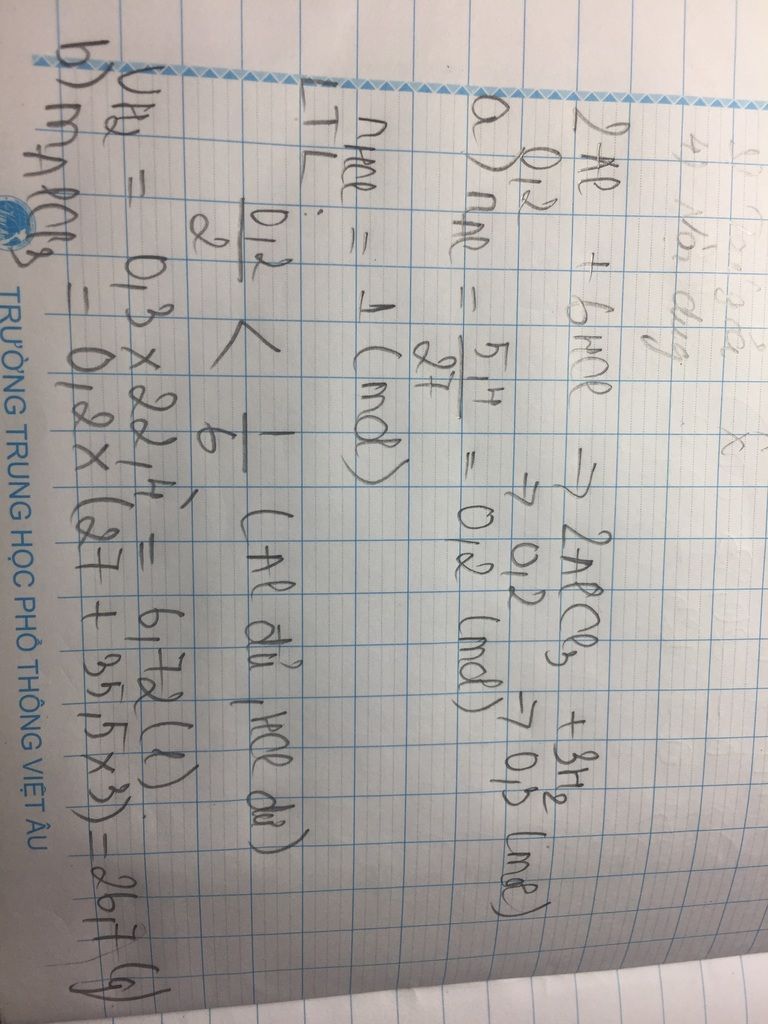 4) Nội dung
2Al + 6HCl → 2AlCl3 + 3H2
0,2 → 0,2 → 0,3 (mol)
a) nAl = 5,4/27 = 0,2 (mol)
nHCl = 1 (mol)
LTL: 0,2/2 < 1/6 (Al đủ, HCl dư)
VH2 = 0,3 x 22,4 = 6,72 (l)
b) mAlCl3 = 0,2 x (27 + 35,5 x 3) = 26,7 (g)
TRƯỜNG TRUNG HỌC PHỔ THÔNG VIỆT ÂU